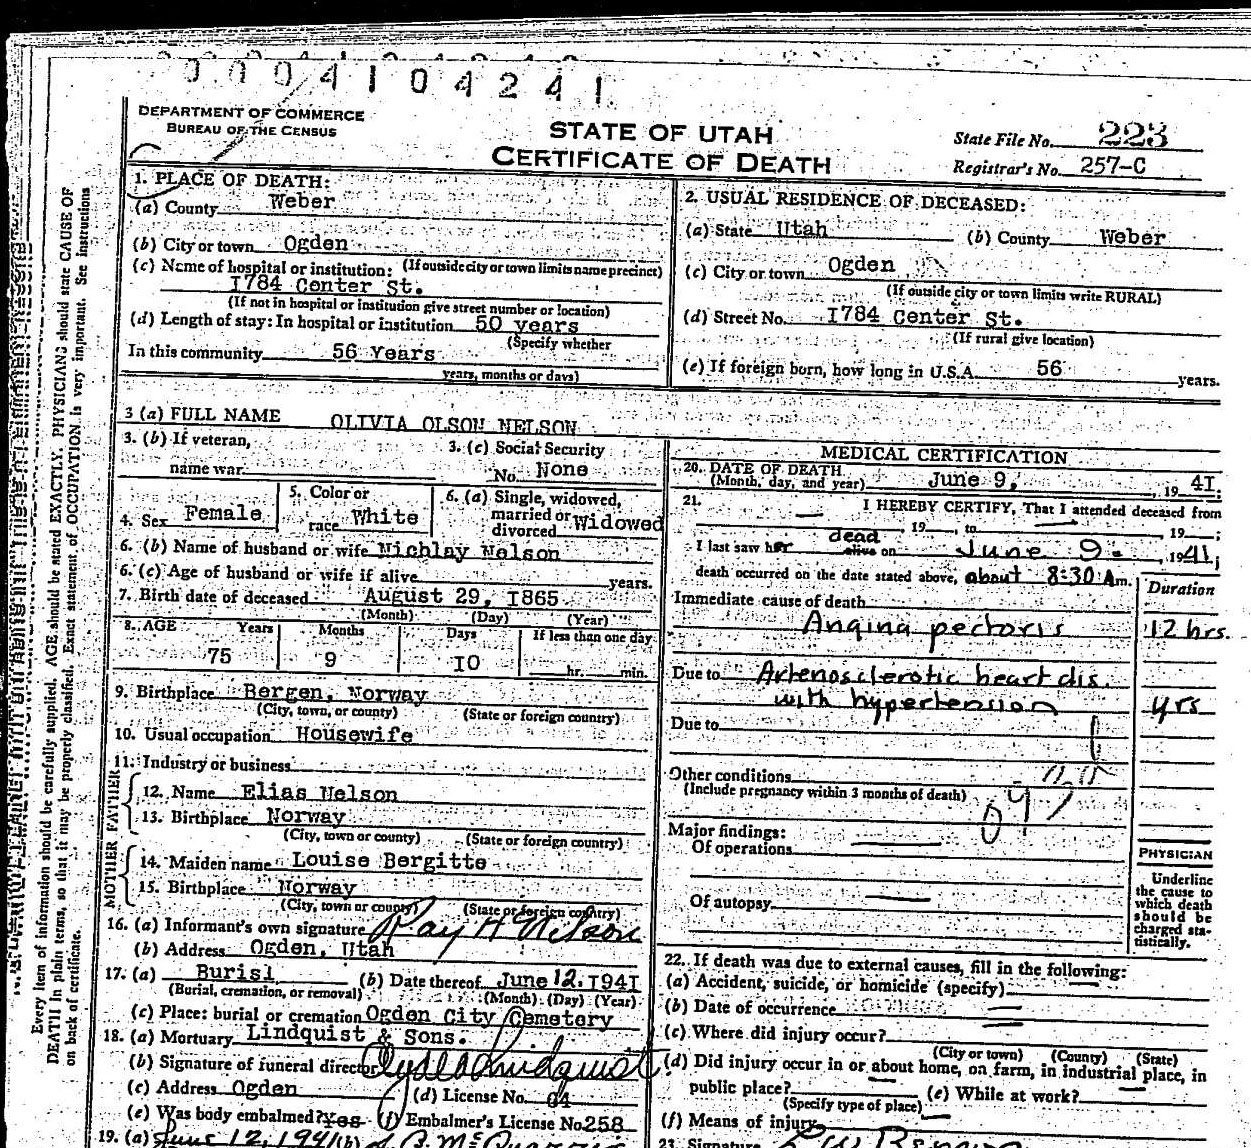 0004104241
DEPARTMENT OF COMMERCE
BUREAU OF THE CENSUS
STATE OF UTAH
CERTIFICATE OF DEATH
State File No. 223
Registrar's No. 257-C
Every item of information should be carefully supplied. AGE should be stated EXACTLY. PHYSICIANS should state CAUSE OF
DEATH in plain terms, so that it may be properly classified. Exact statement of OCCUPATION is very important. See instructions
on back of certificate.
1. PLACE OF DEATH:
(a) County Weber
(b) City or town Ogden
(If outside city or town limits name precinct)
(c) Name of hospital or institution:
1784 Center St.
(If not in hospital or institution give street number or location)
(d) Length of stay: In hospital or institution 50 years
(Specify whether
In this community 56 Years
years, months or days)
2. USUAL RESIDENCE OF DECEASED:
(a) State Utah (b) County Weber
(c) City or town Ogden
(If outside city or town limits write RURAL)
(d) Street No. 1784 Center St.
(If rural give location)
(e) If foreign born, how long in U.S.A. 56 years.
3 (a) FULL NAME OLIVIA OLSON NELSON
3. (b) If veteran,
name war
3. (c) Social Security
No. None
4. Sex Female
5. Color or
race White
6. (a) Single, widowed,
married or
divorced Widowed
6. (b) Name of husband or wife Nichlay Nelson
6. (c) Age of husband or wife if alive years.
7. Birth date of deceased August 29, 1865
(Month) (Day) (Year)
8. AGE Years Months Days If less than one day
75 9 10 hr. min.
9. Birthplace Bergen, Norway
(City, town, or county) (State or foreign country)
10. Usual occupation Housewife
11. Industry or business
FATHER
12. Name Elias Nelson
13. Birthplace Norway
(City, town or county) (State or foreign country)
MOTHER
14. Maiden name Louise Bergitte
15. Birthplace Norway
(City, town or county) (State or foreign country)
16. (a) Informant's own signature Ray H Nelson
(b) Address Ogden, Utah
17. (a) Burisl (b) Date thereof June 12. 1941
(Burial, cremation, or removal) (Month) (Day) (Year)
(c) Place: burial or cremation Ogden City Cemetery
18. (a) Mortuary Lindquist & Sons.
(b) Signature of funeral director Clyde Lindquist
(c) Address Ogden (d) License No. 64
(e) Was body embalmed? Yes (f) Embalmer's License No. 258
19. (a) June 12, 1941 (b)
MEDICAL CERTIFICATION
20. DATE OF DEATH
(Month, day, and year) June 9, , 19 41;
21. I HEREBY CERTIFY, That I attended deceased from
— 19 , to — , 19 ;
I last saw her dead alive on June 9. , 1941;
death occurred on the date stated above, about 8:30 A m.
Duration
Immediate cause of death
Angina pectoris 12 hrs.
Due to Arteriosclerotic heart dis.
with hypertension yrs
Due to
Other conditions
(Include pregnancy within 3 months of death)
Major findings:
Of operations
Of autopsy
PHYSICIAN
Underline
the cause to
which death
should be
charged sta-
tistically.
22. If death was due to external causes, fill in the following:
(a) Accident, suicide, or homicide (specify)
(b) Date of occurrence
(c) Where did injury occur?
(City or town) (County) (State)
(d) Did injury occur in or about home, on farm, in industrial place, in
public place? (e) While at work?
(Specify type of place)
(f) Means of injury
23. Signature